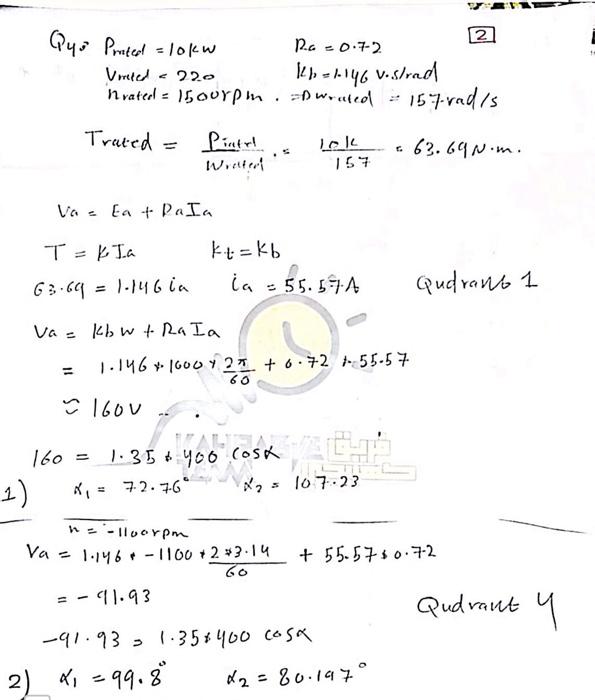 2
Q4: Prated = 10kW Ra = 0.72
Vrated = 220 kb = 1.146 V.s/rad
nrated = 1500rpm. => wrated = 157 rad/s
Trated = Prated / Wrated = 10k / 157 = 63.69 N.m.
Va = Ea + RaIa
T = KIa Kt = Kb
63.69 = 1.146 ia ia = 55.57A Qudrant 1
Va = Kb w + RaIa
= 1.146 * 1000 * 2π/60 + 0.72 * 55.57
≈ 160V
160 = 1.35 * 400 cosα
1) α1 = 72.76° α2 = 107.23
n = -1100rpm
Va = 1.146 * -1100 * 2*3.14/60 + 55.57 * 0.72
= -91.93
Qudrant 4
-91.93 = 1.35*400 cosα
2) α1 = 99.8° α2 = 80.197°